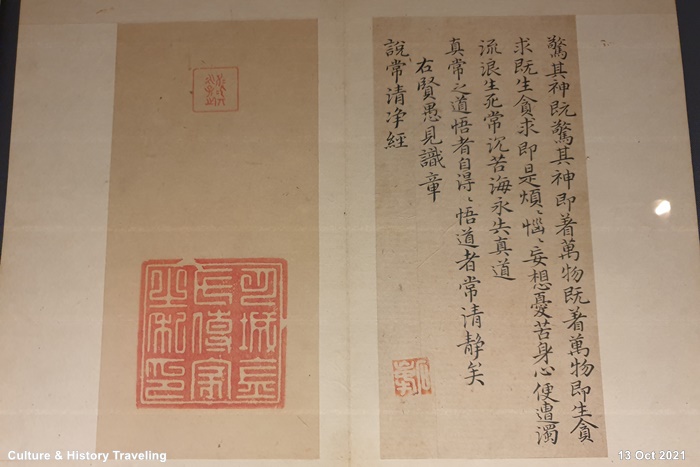 驚其神既驚其神即著萬物既著萬物即生貪
求既生貪求即是煩〻惱〻妄想憂苦身心便遭濁
流浪生死常沉苦海永失真道
真常之道悟者自得〻悟道者常清静矣
右賢愚見識章
說常清净經
Culture & History Traveling
13 Oct 2021